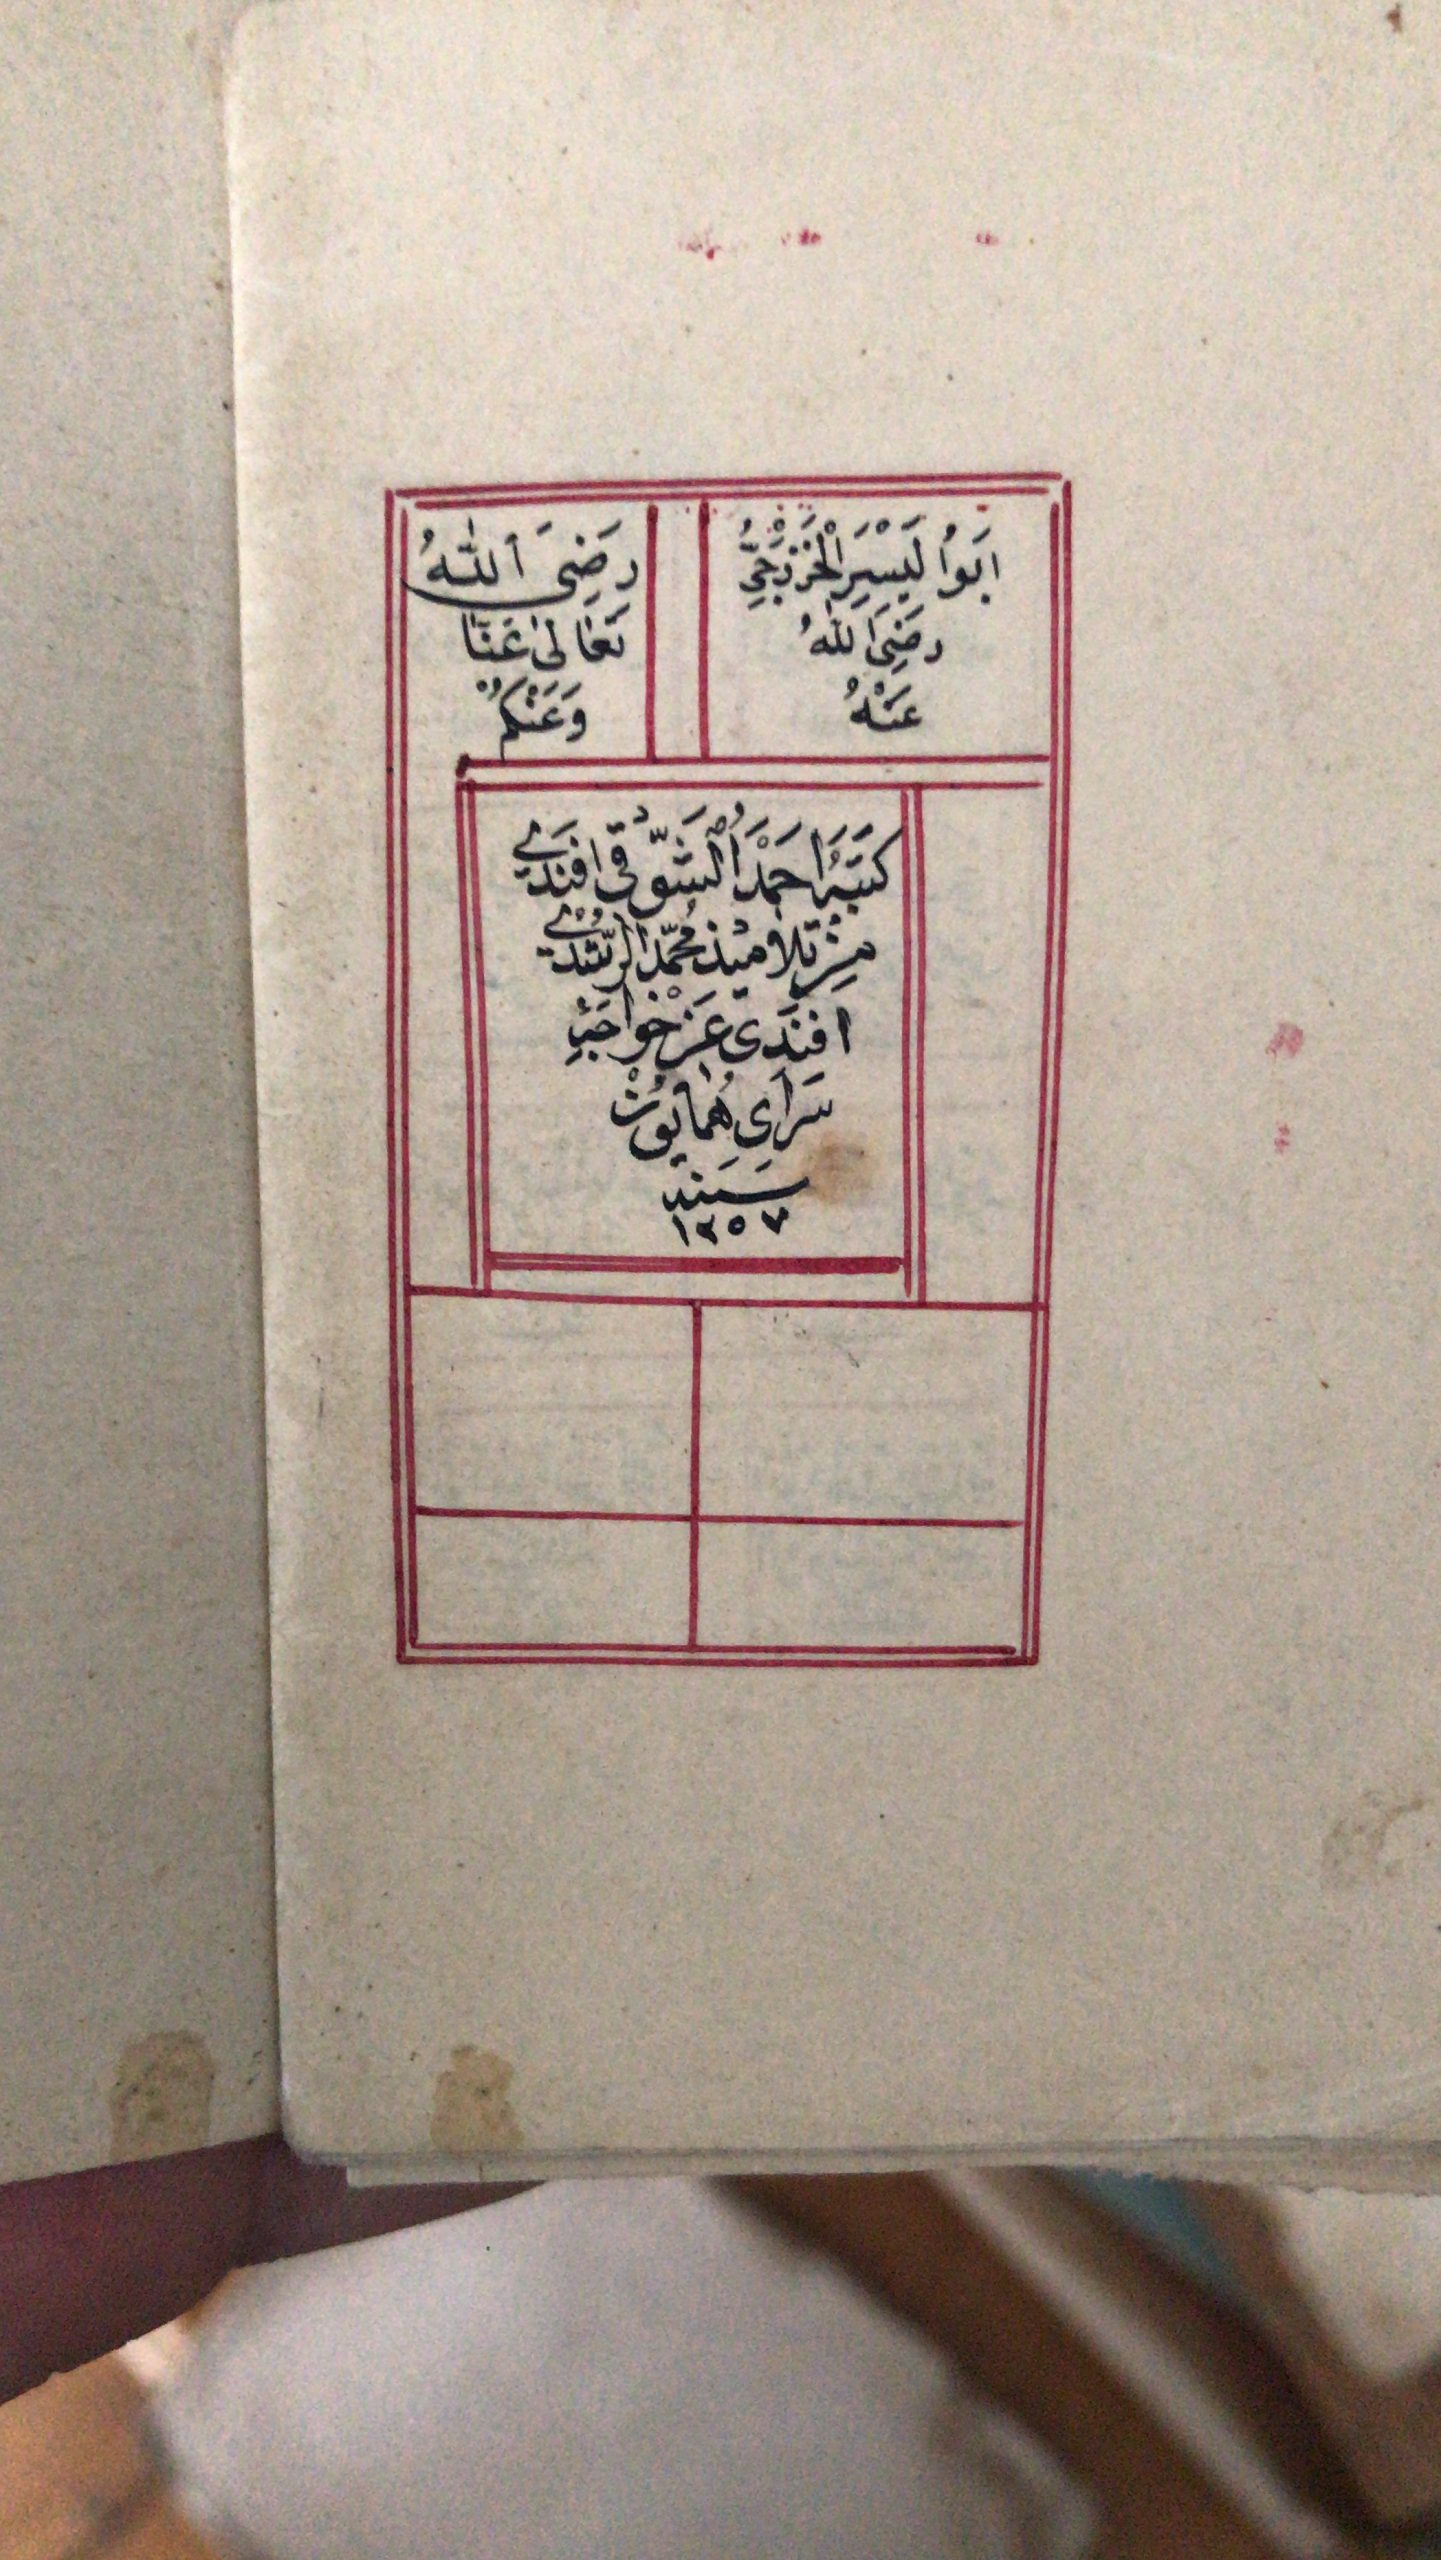 ابَوُا لْيَسْرِ الْخَزْرَجِيُّ
رَضِيَ اللّٰهُ
عَنْهُ
رَضِىَ اللّٰهُ
تَعَالٰى عَنَّا
وَعَنْكُمْ
كَتَبَهُ اَحْمَدُ الشَّوْقِى اَفَنْدِى
مِنْ تَلَامِيذِ مُحَمَّدُ الرُّشْدِى
افَنْدِى عَنْ خَواجَهِ
سَرَاىِ هُمَايُونْ
سَنَه
١٢٥٧